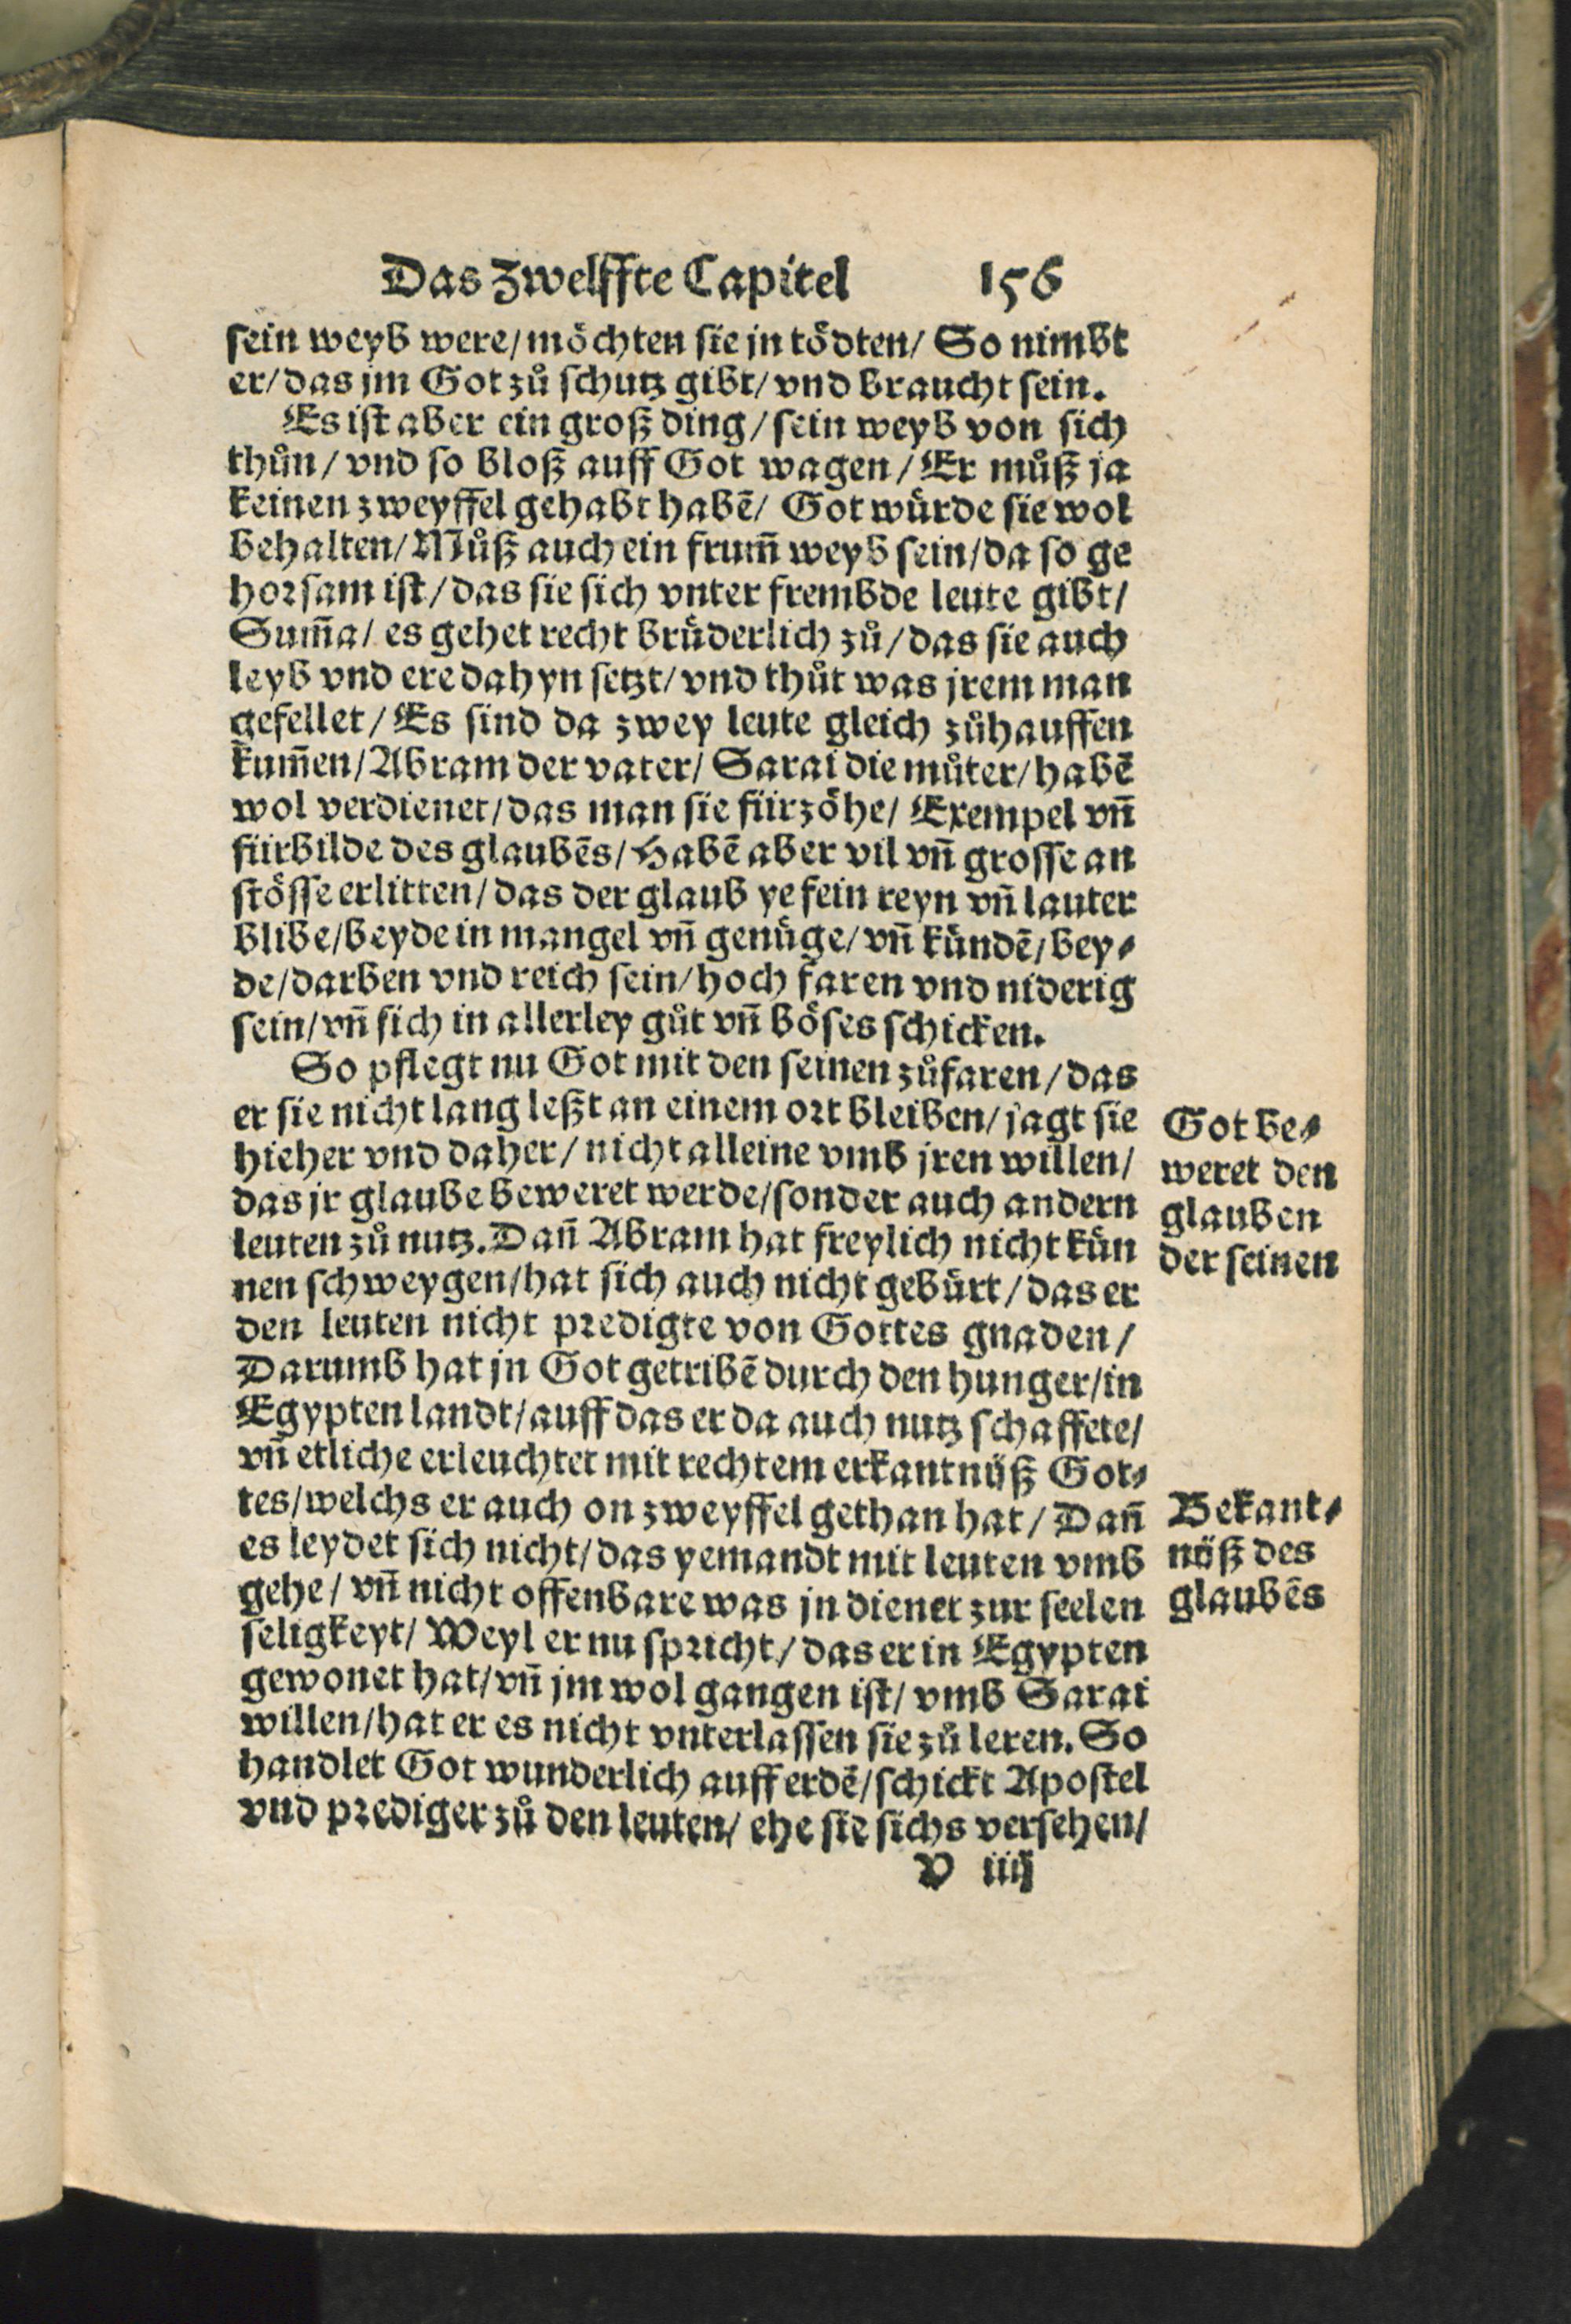 Das Zwelffte Capitel 156
sein weyb were/ möchten sie jn tödten/ So nimbt
er/ das jm Got zů schutz gibt/ vnd braucht sein.
Es ist aber ein groß ding/ sein weyb von sich
thůn/ vnd so bloß auff Got wagen/ Er můß ja
keinen zweyffel gehabt habē/ Got würde sie wol
behalten/ Můß auch ein frum̄ weyb sein/ da so ge
horsam ist/ das sie sich vnter frembde leute gibt/
Sum̄a/ es gehet recht brüderlich zů/ das sie auch
leyb vnd ere dahyn setzt/ vnd thůt was jrem man
gefellet/ Es sind da zwey leute gleich zůhauffen
kum̄en/ Abram der vater/ Sarai die můter/ habē
wol verdienet/ das man sie fürzöhe/ Exempel vn̄
fürbilde des glaubēs/ Habē aber vil vn̄ grosse an
stösse erlitten/ das der glaub ye fein reyn vn̄ lauter
blibe/ beyde in mangel vn̄ genüge/ vn̄ kündē/ bey⸗
de/ darben vnd reich sein/ hoch faren vnd niderig
sein/ vn̄ sich in allerley gůt vn̄ böses schicken.
So pflegt nu Got mit den seinen zůfaren/ das
er sie nicht lang leßt an einem ort bleiben/ jagt sie
hieher vnd daher/ nicht alleine vmb jren willen/
das jr glaube beweret werde/ sonder auch andern
leuten zů nutz. Dan̄ Abram hat freylich nicht kün
nen schweygen/ hat sich auch nicht gebürt/ das er
den leuten nicht predigte von Gottes gnaden/
Darumb hat jn Got getribē durch den hunger/ in
Egypten landt/ auff das er da auch nutz schaffete/
vn̄ etliche erleuchtet mit rechtem erkantnüß Got⸗
tes/ welchs er auch on zweyffel gethan hat/ Dan̄
es leydet sich nicht/ das yemandt mit leuten vmb
gehe/ vn̄ nicht offenbare was jn dienet zur seelen
seligkeyt/ Weyl er nu spricht/ das er in Egypten
gewonet hat/ vn̄ jm wol gangen ist/ vmb Sarai
willen/ hat er es nicht vnterlassen sie zů leren. So
handlet Got wunderlich auff erdē/ schickt Apostel
vnd prediger zů den leuten/ ehe sie sichs versehen/
V iiij
Got be⸗
weret den
glauben
der seinen
Bekant⸗
nüß des
glaubēs